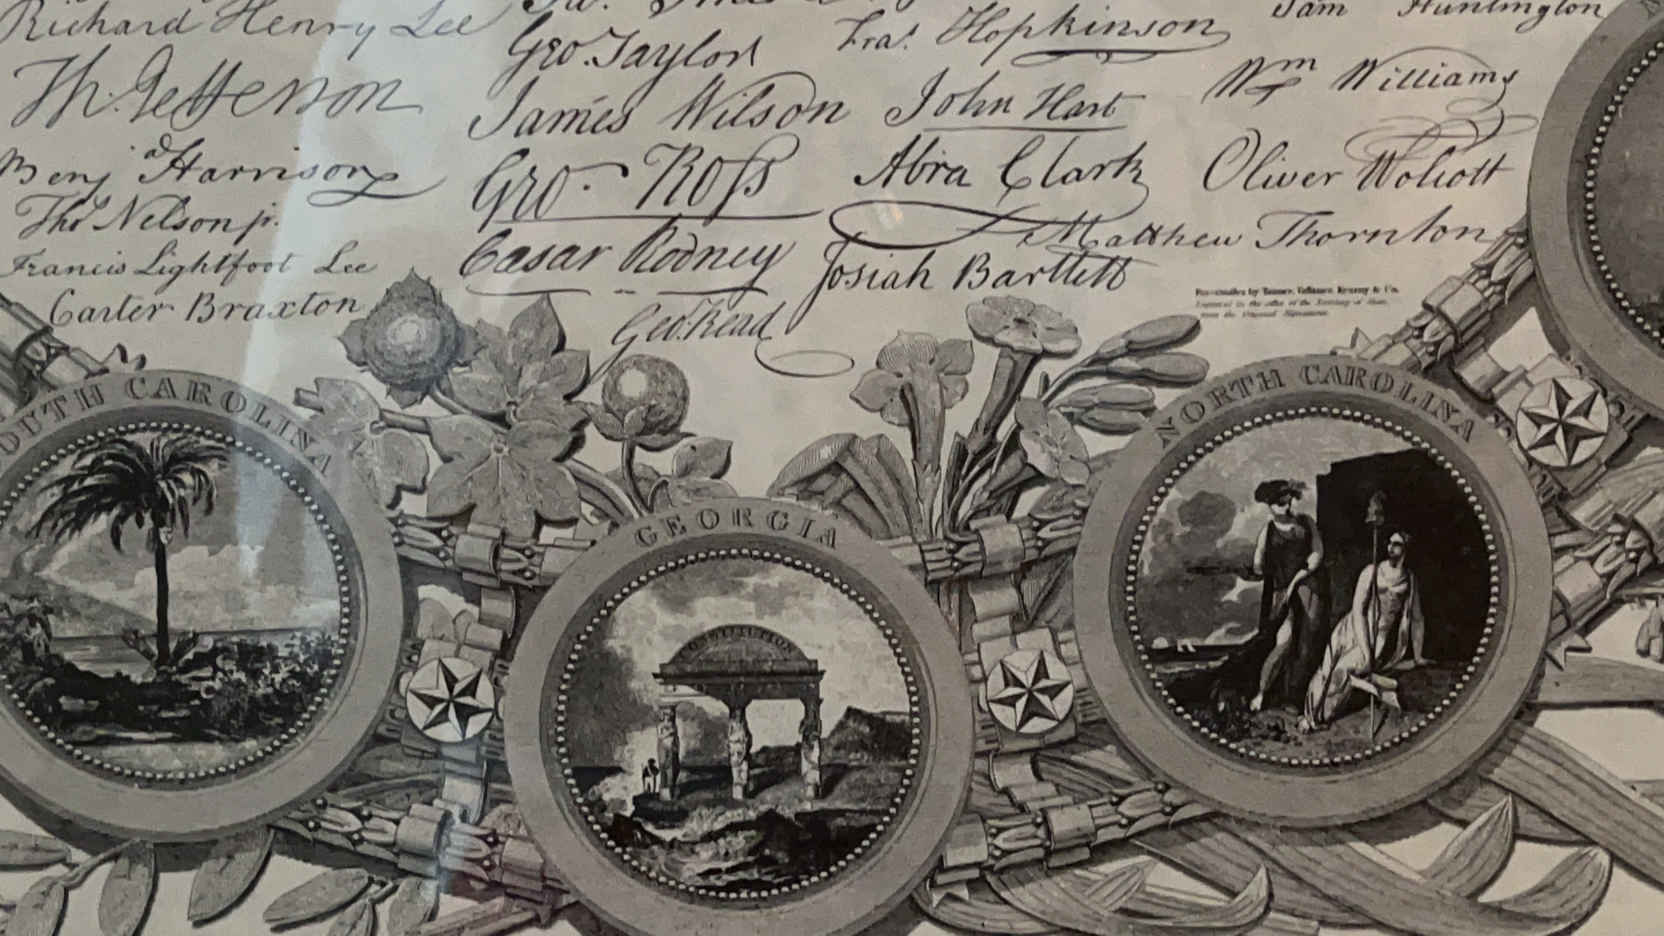 Richard Henry Lee
Th. Jefferson
Benj Harrison
Thos Nelson jr.
Francis Lightfoot Lee
Carter Braxton
Geo. Taylor
James Wilson
Geo. Ross
Caesar Rodney
Geo. Read
Fras. Hopkinson
John Hart
Abra Clark
Sam Huntington
Wm Williams
Oliver Wolcott
Matthew Thornton
Josiah Bartlett
OUTH CAROLINA
GEORGIA
NORTH CAROLINA